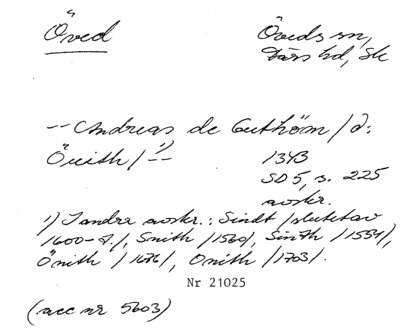 Öved
Öveds sn,
Färs hd, Sk
-- Andreas de Guthöm / ɔ:
Öuith / 1) --
1343
SD 5, s. 225
avskr.
1) I andra avskr.: Sindt / slutet av
1600-t. /, Snith / 1560 /, Sinth / 1554 /,
Önith / 1676 /, Onith / 1703 /.
Nr 21025
(acc nr 5603)